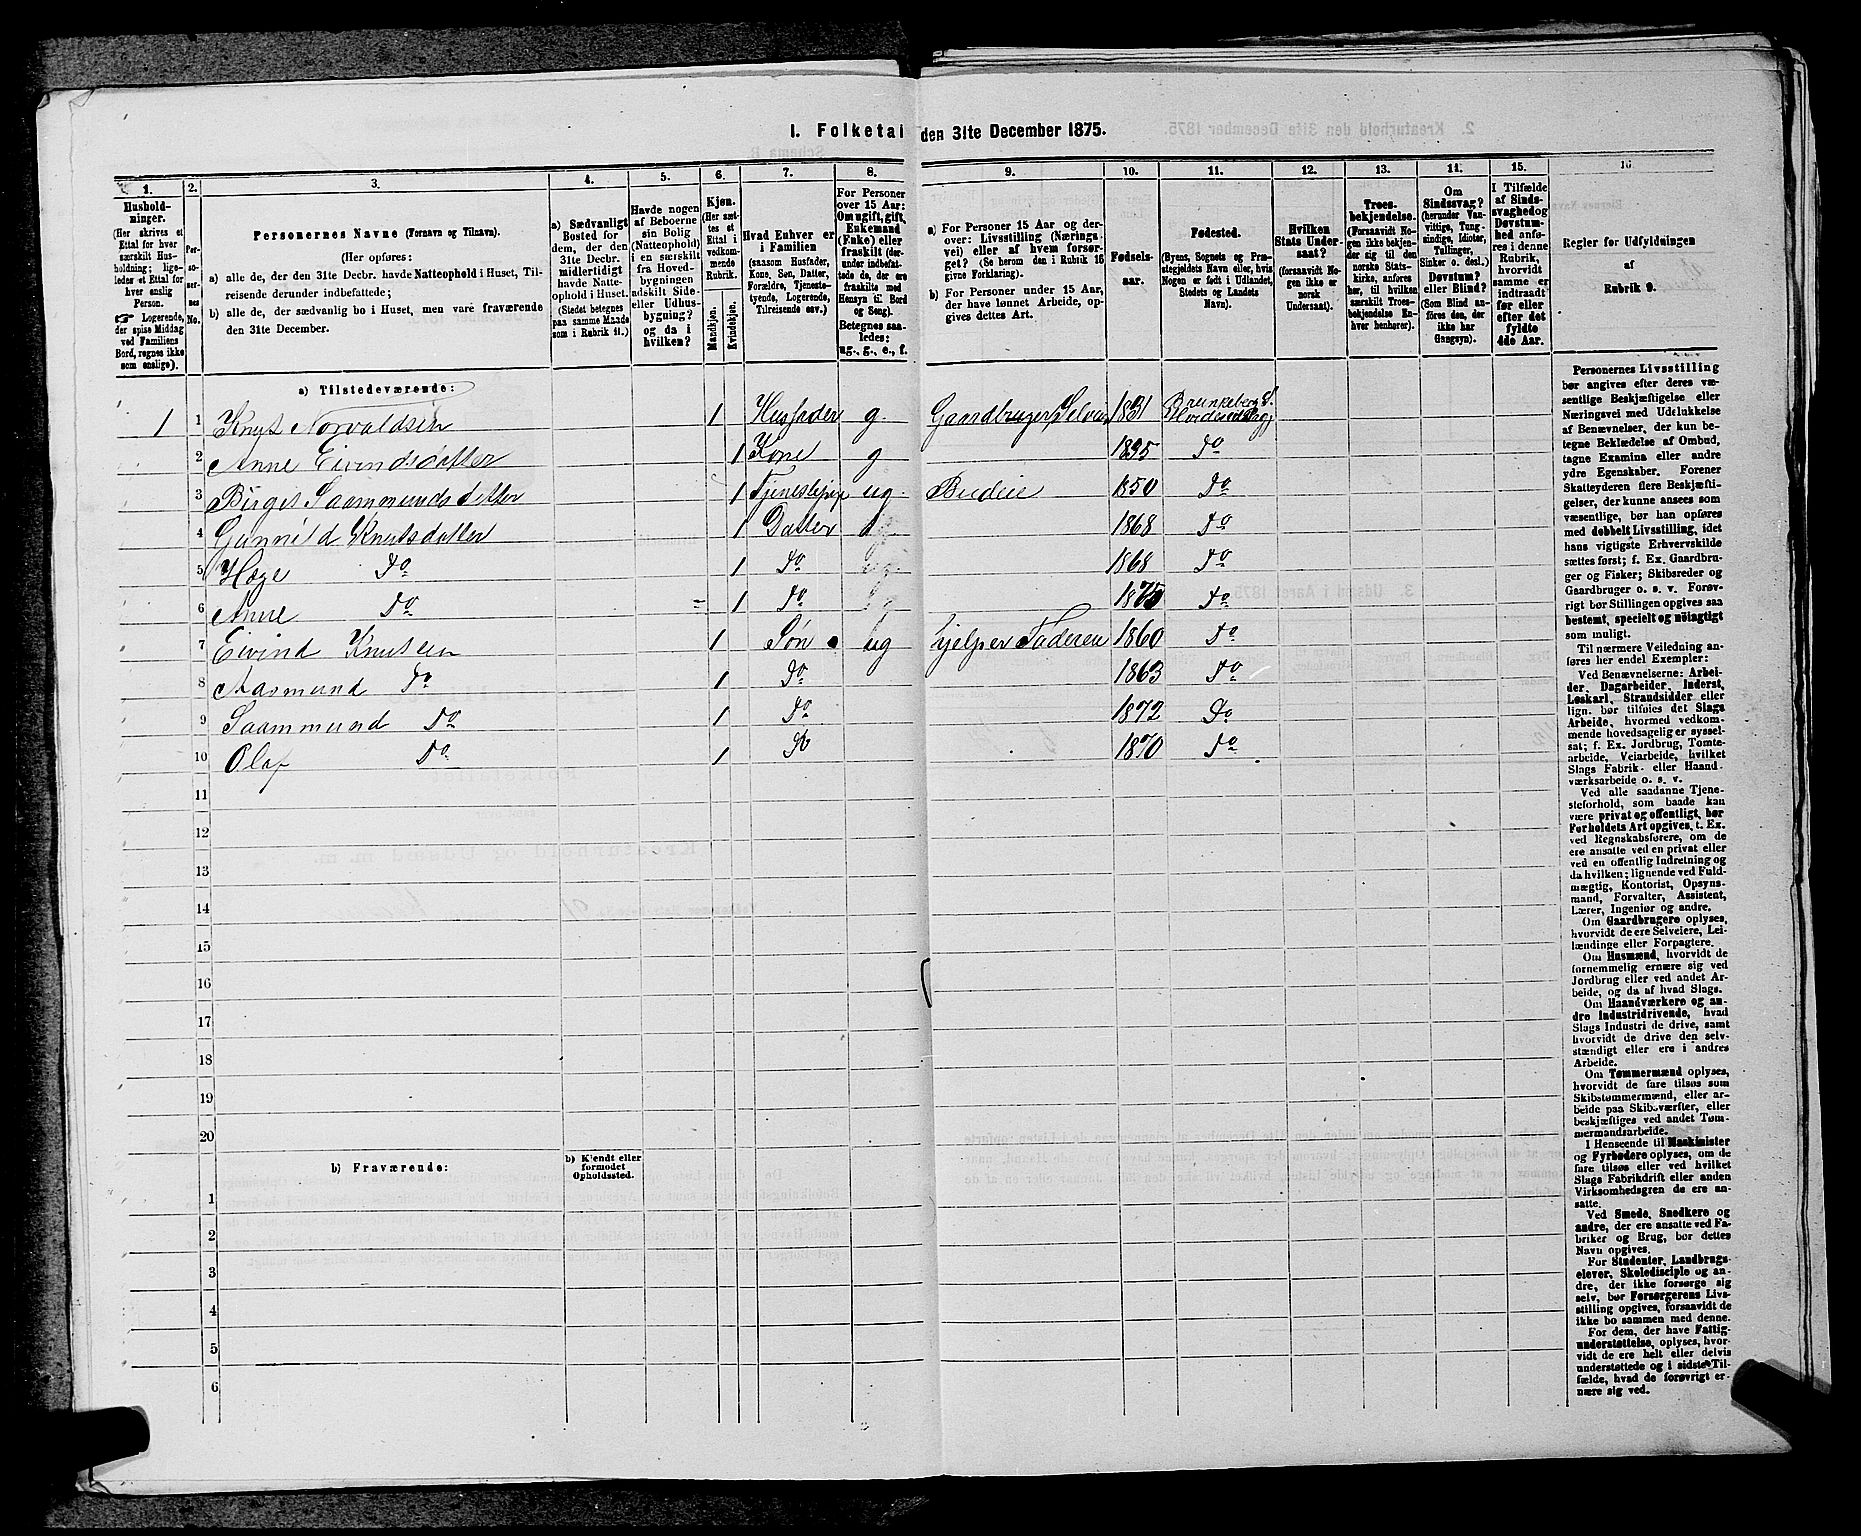 I. Folketal den 31te December 1875.
1. 2. 3. 4. 5. 6. 7. 8. 9. 10. 11. 12. 13. 14. 15. 16.
Hushold-
ninger.
(Her skrives et
Ettal for hver
særskilt Hus-
holdning; lige-
ledes et Ettal for
hver enslig
Person.
☞ Logerende,
der spise Middag
ved Familiens
Bord, regnes ikke
som enslige).
Per-
so-
ner-
nes
No.
Personernes Navne (Fornavn og Tilnavn).
(Her opføres:
a) alle de, der den 31te Decbr. havde Natteophold i Huset, Til-
reisende derunder indbefattede;
b) alle de, der sædvanlig bo i Huset, men vare fraværende
den 31te December.
a) Sædvanligt
Bosted for
dem, der den
31te Decbr.
midlertidigt
havde Natte-
ophold i Huset.
(Stedet betegnes
paa samme Maade
som i Rubrik 11.)
Havde nogen
af Beboerne
sin Bolig
(Natteophold)
i en særskilt
fra Hoved-
bygningen
adskilt Side-
eller Udhus-
bygning?
og da i
hvilken?
Kjøn.
(Her sæt-
tes et
Ettal i
vedkom-
mende
Rubrik.
Mandkjøn.
Kvindekjøn.
Hvad Enhver er
i Familien
(saasom Husfader,
Kone, Søn, Datter,
Forældre, Tjeneste-
tyende, Logerende,
Tilreisende osv.)
For Personer
over 15 Aar:
Om ugift, gift,
Enkemand
(Enke) eller
fraskilt (der-
under indbefat-
tede de, der ere
fraskilte med
Hensyn til Bord
og Seng).
Betegnes saa-
ledes:
ug., g., e., f.
a) For Personer 15 Aar og der-
over: Livsstilling (Nærings-
vei) eller af hvem forsør-
get? (Se herom den i Rubrik 16
givne Forklaring).
b) For Personer under 15 Aar,
der have lønnet Arbeide, op-
gives dettes Art.
Fødsels-
aar.
Fødested.
(Byens, Sognets og Præ-
stegjeldets Navn eller, hvis
Nogen er født i Udlandet,
Stedets og Landets
Navn).
Hvilken
Stats Under-
saat?
(forsaavidt No-
gen ikke er
norsk
Undersaat).
Troes-
bekjendelse.
(Forsaavidt No-
gen ikke bekjen-
der sig til den
norske Stats-
kirke, anføres
her, til hvilken
særskilt Troes-
bekjendelse En-
hver henhører).
Om
Sindssvag?
(herunder Van-
vittige, Tung-
sindige, Idioter,
Tullinger,
Sinker o. desl.)
Døvstum?
eller Blind?
(Som Blind an-
føres den, der
ikke har
Gangsyn).
I Tilfælde
af Sinds-
svaghed og
Døvstum-
hed anfø-
res i denne
Rubrik,
hvorvidt
samme er
indtraadt
før eller
efter det
fyldte
4de Aar.
Regler for Udfyldningen
af
Rubrik 9.
a) Tilstedeværende:
1 1 Knut Norvaldsen 1 Husfader g. Gaardbruger Selveier 1831 Brunkeberg S. Hvideseid Prgj
2 Anne Eivindsdatter 1 Kone g 1835 Do
3 Birgit Saammundsdatter 1 ug. Budeie 1850 Do
4 Gunnild Knutsdatter 1 Datter 1868 Do
5 Hæge Do 1 Do 1868 Do
6 Anne Do 1 Do 1875 Do
7 Eivind Knutsen 1 Søn ug hjelper Faderen 1860 Do
8 Aasmund Do 1 Do 1863 Do
9 Saammund Do 1 Do 1872 Do
10 Olaf Do 1 Do 1870 Do
11
12
13
14
15
16
17
18
19
20
b) Fraværende:
b) Kjendt eller
formodet
Opholdssted.
1
2
3
4
5
6
Personernes Livsstilling
bør angives efter deres væ-
sentlige Beskjæftigelse eller
Næringsvei med Udelukkelse
af Benævnelser, der kun be-
tegne Beklædelse af Ombud,
tagne Examina eller andre
ydre Egenskaber. Forener
Skatteyderen flere Beskjæfti-
gelser, der kunne ansees som
væsentlige, bør han opføres
med dobbelt Livsstilling, idet
hans vigtigste Erhvervskilde
sættes først; f. Ex. Gaardbru-
ger og Fisker; Skibsreder og
Gaardbruger o. s. v. Forøv-
rigt bør Stillingen opgives saa
bestemt, specielt og nøiagtigt
som muligt.
Til nærmere Veiledning an-
føres her endel Exempler:
Ved Benævnelserne: Arbei-
der, Dagarbeider, Inderst,
Løskarl, Strandsidder eller
lign. bør tilføies det Slags
Arbeide, hvormed vedkom-
mende hovedsagelig er syssel-
sat; f. Ex. Jordbrug, Tomte-
arbeide, Veiarbeide, hvilket
Slags Fabrik- eller Haand-
værksarbeide o. s. v.
Ved alle saadanne Tjene-
steforhold, som baade kan
være privat og offentligt, bør
Forholdets Art opgives, t. Ex.
ved Regnskabsførere, om de
ere ansatte ved en privat eller
ved en offentlig Indretning og
da hvilken; lignende ved Fuld-
mægtig, Kontorist, Opsyns-
mand, Forvalter, Assistent,
Lærer, Ingeniør og andre.
Om Gaardbrugere oplyses,
hvorvidt de ere Selveiere, Lei-
lændinge eller Forpagtere.
Om Husmænd, hvorvidt de
fornemmelig ernære sig ved
Jordbrug eller ved andet Ar-
beide, og da af hvad Slags.
Om Haandværkere og an-
dre Industridrivende, hvad
Slags Industri de drive, samt
hvorvidt de drive den selv-
stændigt eller ere i andres
Arbeide.
Om Tømmermænd oplyses,
hvorvidt de fare tilsøs som
Skibstømmermænd, eller ar-
beide paa Skibsværfter, eller
beskjæftiges ved andet Tøm-
mermandsarbeide.
I Henseende til Maskinister
og Fyrbødere oplyses, om de
fare tilsøs eller ved hvilket
Slags Fabrikdrift eller anden
Virksomhedsgren de ere an-
satte.
Ved Smede, Snedkere og
andre, der ere ansatte ved Fa-
briker og Brug, bør dettes
Navn opgives.
For Studenter, Landbrugs-
elever, Skoledisciple og an-
dre, der ikke forsørge sig
selv, bør Forsørgerens Livs-
stilling opgives, forsaavidt de
ikke bo sammen med denne.
For dem, der have Fattig-
understøttelse, oplyses, hvor-
vidt de ere helt eller delvis
understøttede og i sidste Til-
fælde, hvad de forøvrigt er-
nære sig ved.